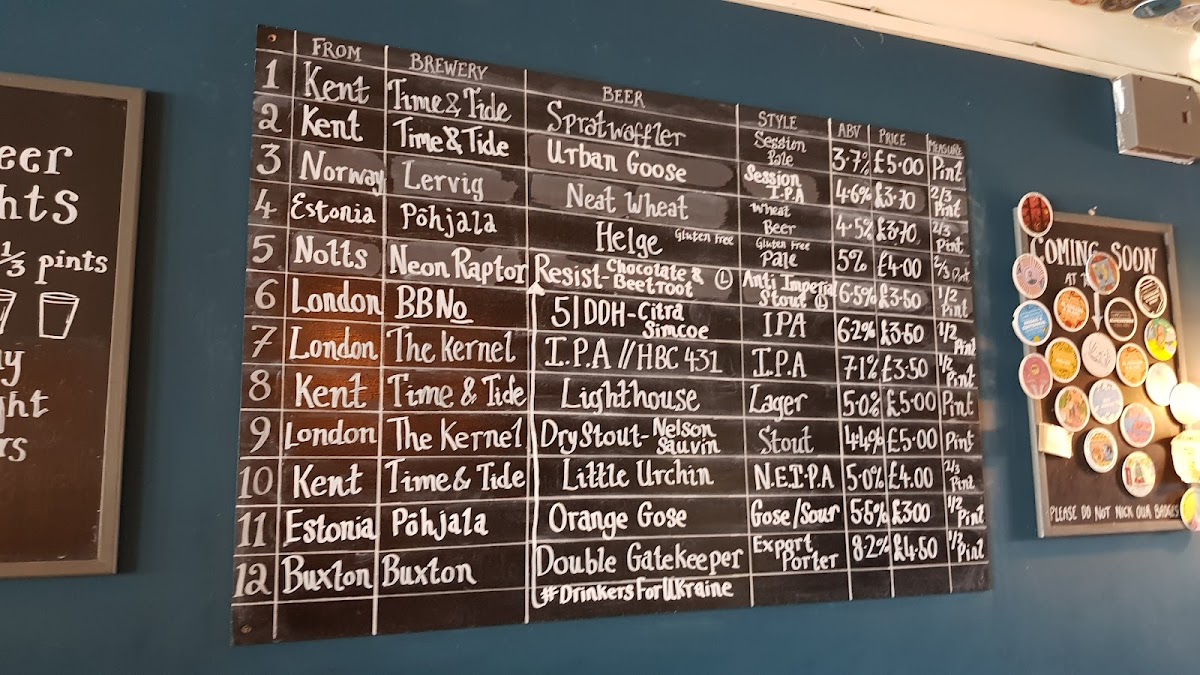 eer
hts
⅓ pints
ght
rs
FROM BREWERY BEER STYLE ABV PRICE MEASURE
1 Kent Time & Tide Spratwaffler Session Pale 3.7% £5.00 Pint
2 Kent Time & Tide Urban Goose Session I.P.A 4.6% £3.70 2/3 Pint
3 Norway Lervig Neat Wheat Wheat Beer 4.5% £3.70 2/3 Pint
4 Estonia Põhjala Helge Gluten Free Gluten Free Pale 5% £4.00 2/3 Pint
5 Notts Neon Raptor Resist - Chocolate & Beetroot (L) Anti Imperial Stout (L) 6.5% £3.50 1/2 Pint
6 London BBNo 51 DDH - Citra Simcoe IPA 6.2% £3.60 1/2 Pint
7 London The Kernel I.P.A // HBC 431 I.P.A 7.1% £3.50 1/2 Pint
8 Kent Time & Tide Lighthouse Lager 5.0% £5.00 Pint
9 London The Kernel Dry Stout - Nelson Sauvin Stout 4.4% £5.00 Pint
10 Kent Time & Tide Little Urchin N.E.I.P.A 5.0% £4.00 2/3 Pint
11 Estonia Põhjala Orange Gose Gose/Sour 5.5% £3.00 1/2 Pint
12 Buxton Buxton Double Gatekeeper Export Porter 8.2% £4.50 1/2 Pint
#DrinkersForUkraine
COMING SOON
AT
PLEASE DO NOT NICK OUR BADGES